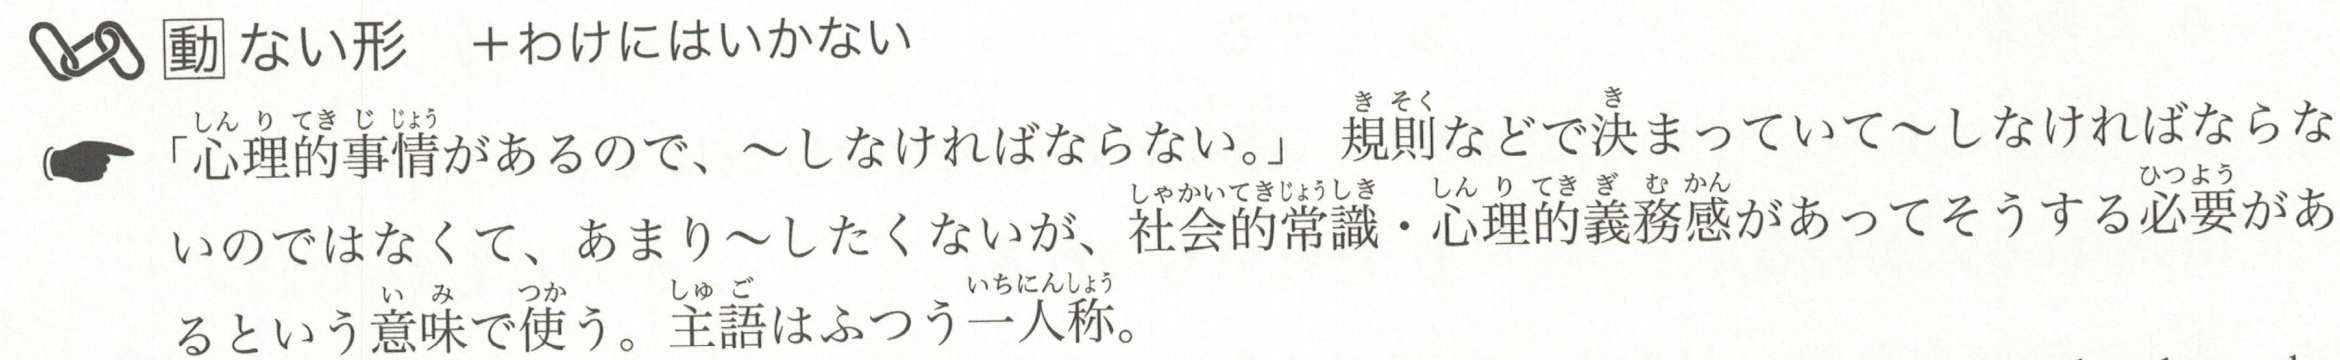 動 ない形　＋わけにはいかない
「心理的事情があるので、～しなければならない。」 規則などで決まっていて～しなければならな
いのではなくて、あまり～したくないが、社会的常識・心理的義務感があってそうする必要があ
るという意味で使う。主語はふつう一人称。